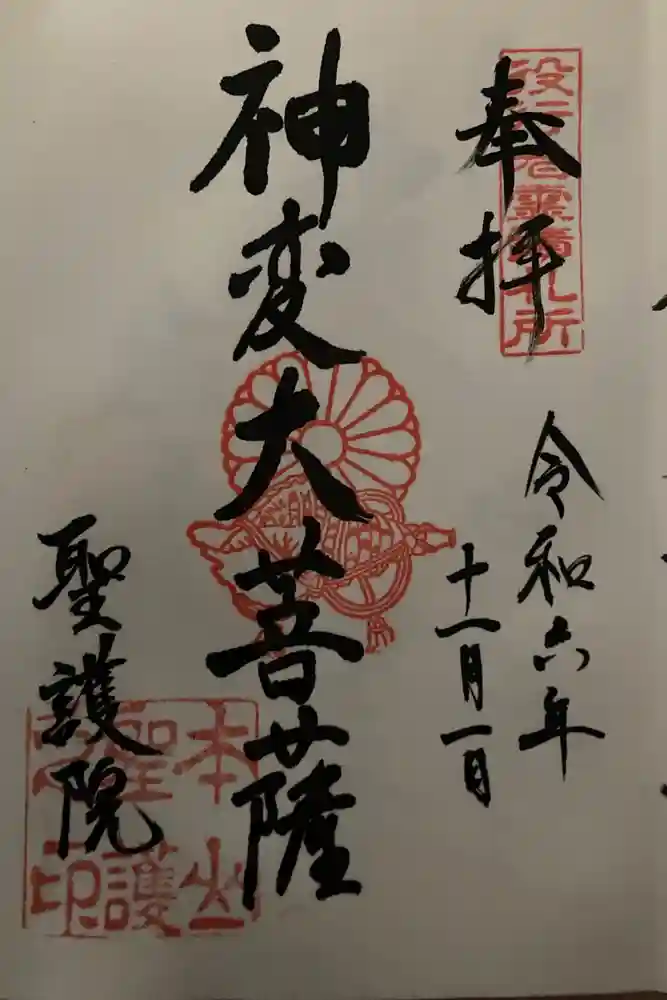 奉拝
役行者霊蹟札所
令和六年
十一月一日
神変大菩薩
聖護院
本山
聖護
院印